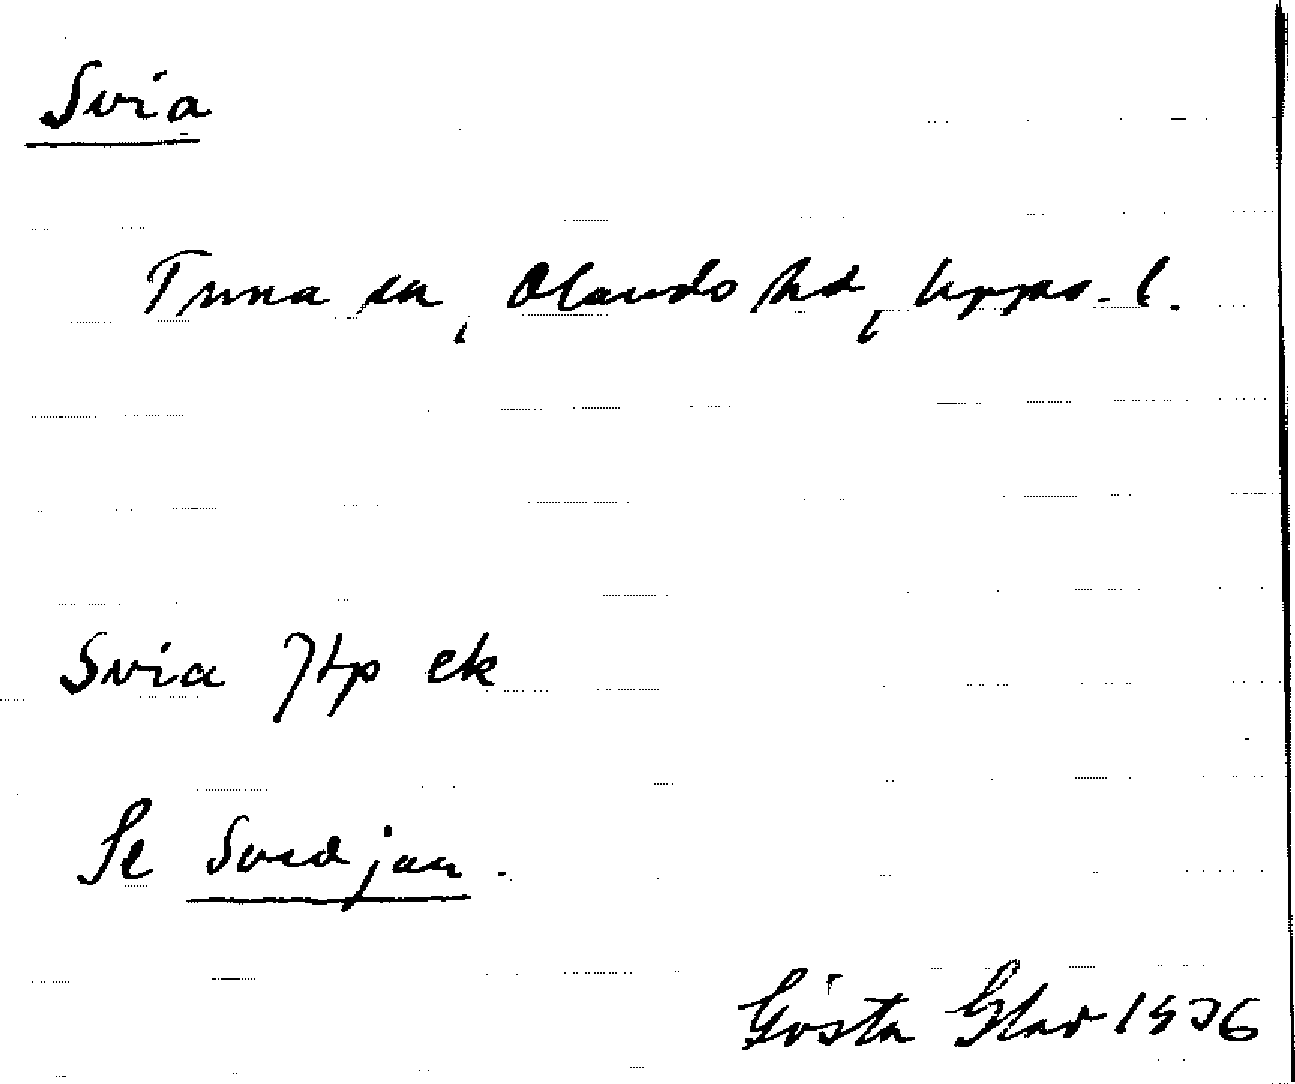 Svia
Tuna sn, Olands hd, Upps. l.
Svia Jtp ek
Se Svedjan.
Gösta Glav 1936